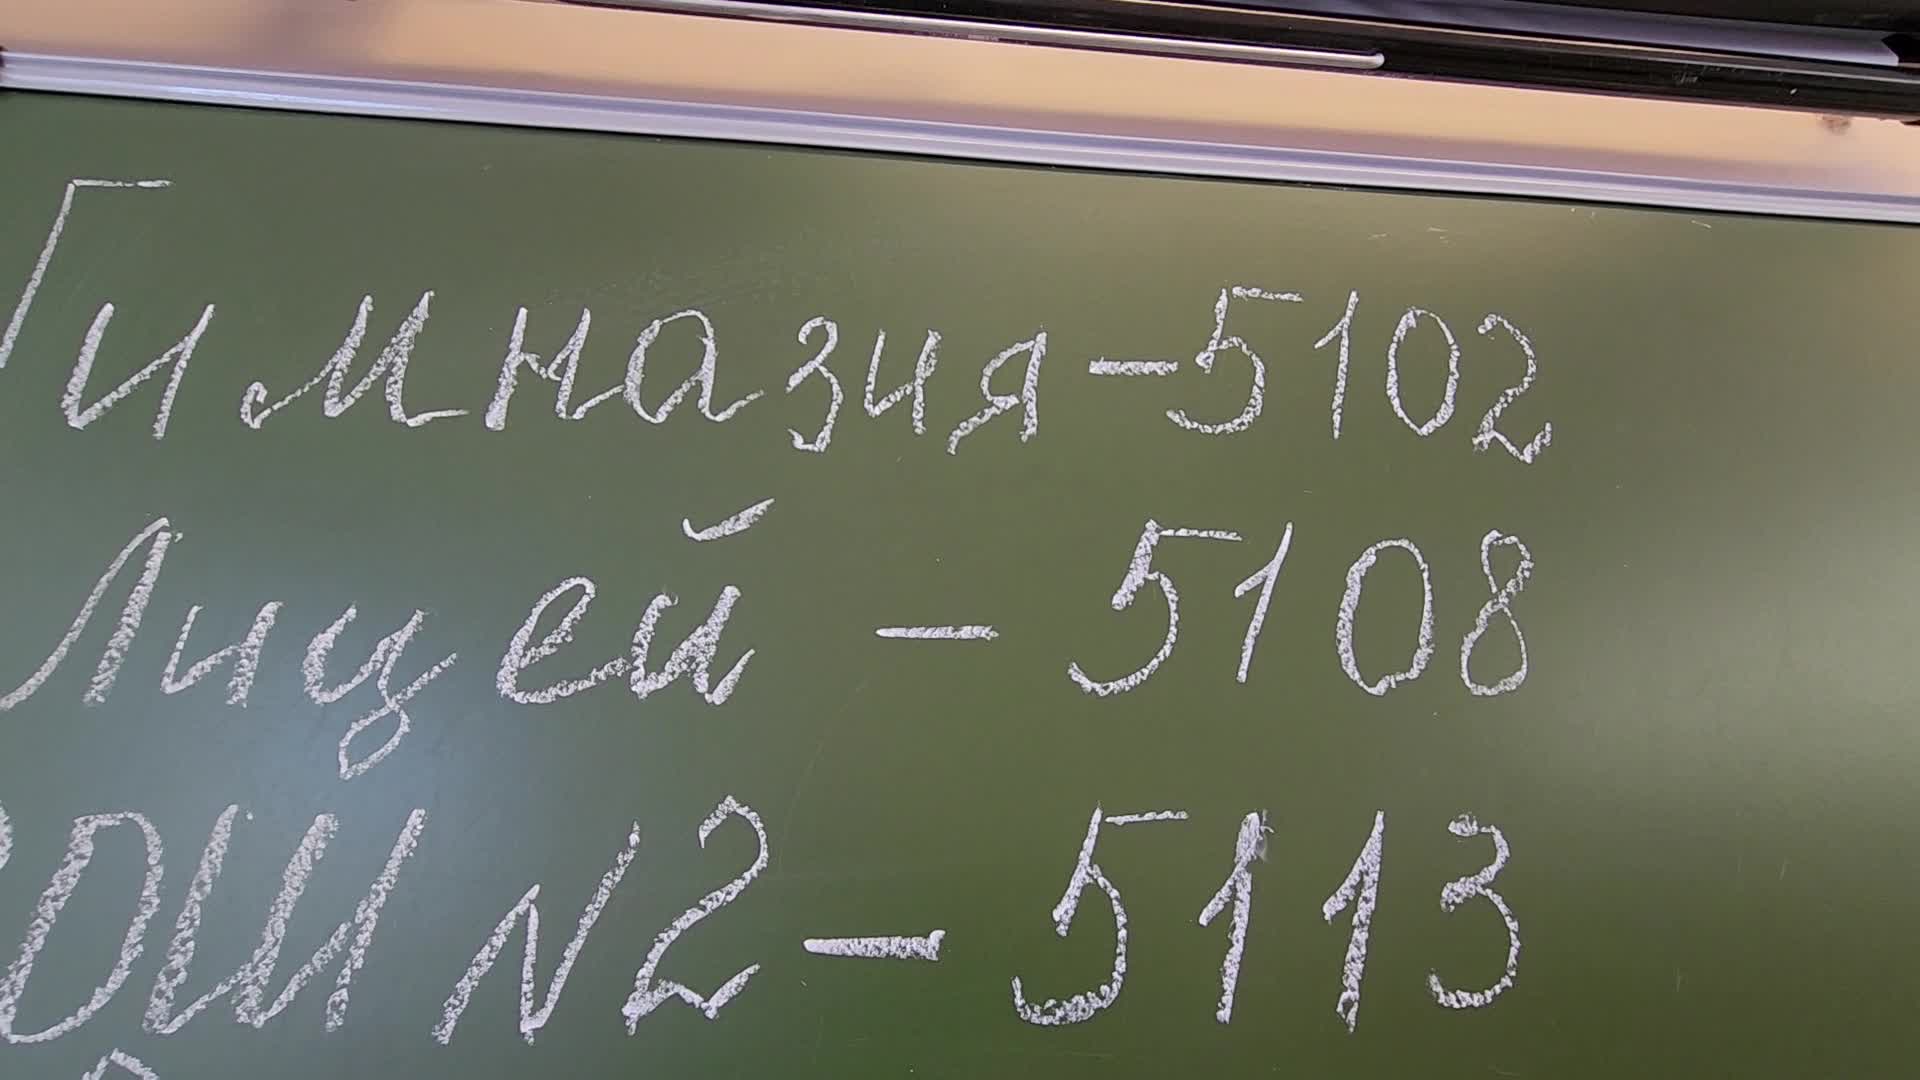 Гимназия - 5102
Лицей - 5108
СОШ N2 - 5113